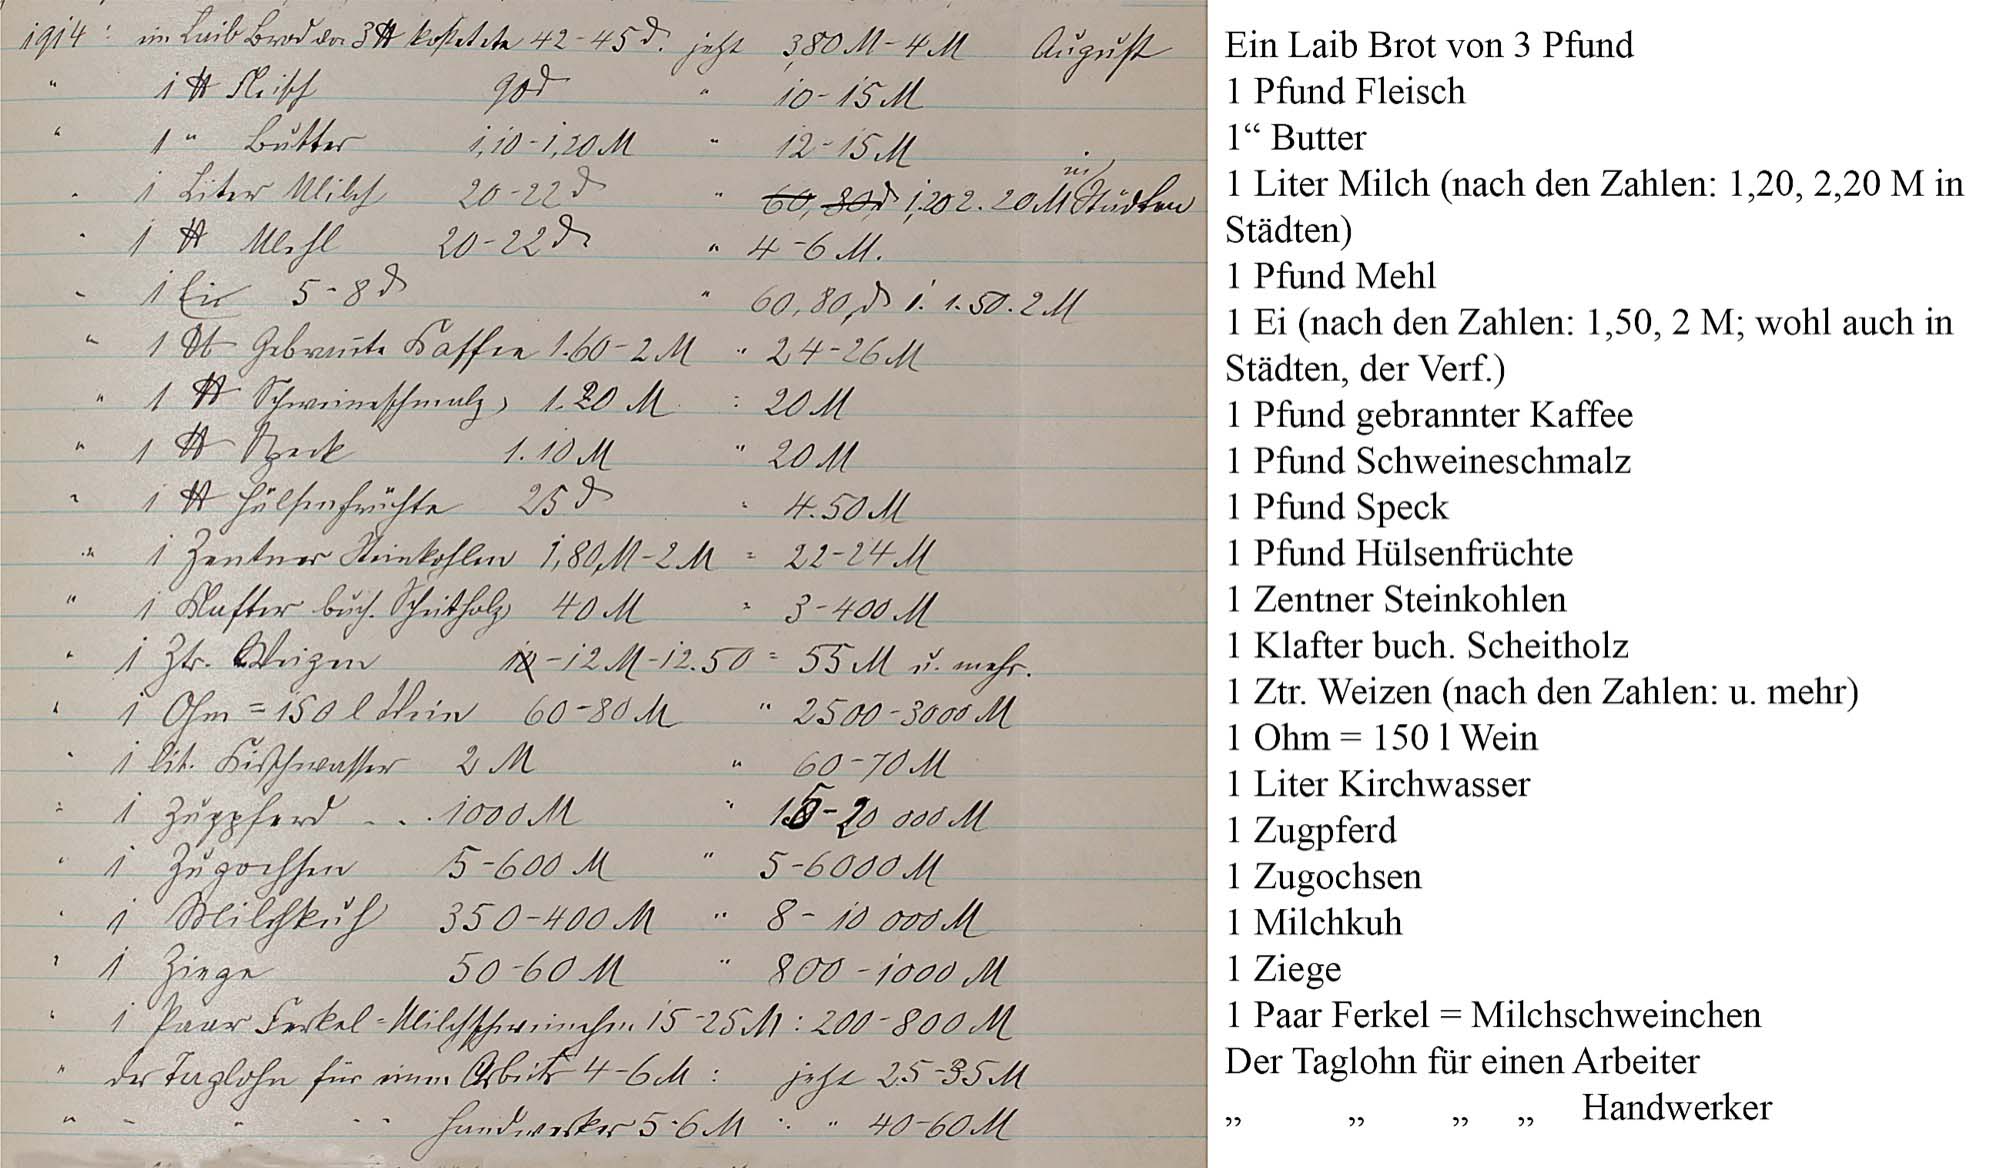 1914: ein Laib Brod von 3 ℔ kostete 42-45 ₰. jetzt 3,80 M - 4 M August
" 1 ℔ Fleisch 90 ₰ " 10-15 M
" 1 " Butter 1,10-1,20 M " 12-15 M
" 1 Liter Milch 20-22 ₰ " 60, 80 ₰ 1,20 2.20 M in Städten
" 1 ℔ Mehl 20-22 ₰ " 4-6 M.
" 1 Ei 5-8 ₰ " 60, 80 ₰ i. 1.50. 2 M
" 1 ℔ Gebrannte Kaffee 1.60-2 M " 24-26 M
" 1 ℔ Schweineschmalz, 1.20 M " 20 M
" 1 ℔ Speck 1.10 M " 20 M
" 1 ℔ Hülsenfrüchte 25 ₰ " 4.50 M
" 1 Zentner Steinkohlen 1,80 M-2 M " 22-24 M
" 1 Klafter buch. Scheitholz 40 M " 3-400 M
" 1 Ztr. Weizen 10-12 M-12.50 = 55 M u. mehr.
" 1 Ohm = 150 l Wein 60-80 M " 2500-3000 M
" 1 lit. Kirschwasser 2 M " 60-70 M
" 1 Zugpferd . . . 1000 M " 15-20 000 M
" 1 Zugochsen 5-600 M " 5-6000 M
" 1 Milchkuh 350-400 M " 8-10 000 M
" 1 Ziege 50-60 M " 800-1000 M
" 1 Paar Ferkel=Milchschweinchen 15-25 M : 200-800 M
" der Taglohn für einen Arbeiter 4-6 M : jetzt 25-35 M
" " " " Handwerker 5-6 M " " 40-60 M
Ein Laib Brot von 3 Pfund
1 Pfund Fleisch
1“ Butter
1 Liter Milch (nach den Zahlen: 1,20, 2,20 M in
Städten)
1 Pfund Mehl
1 Ei (nach den Zahlen: 1,50, 2 M; wohl auch in
Städten, der Verf.)
1 Pfund gebrannter Kaffee
1 Pfund Schweineschmalz
1 Pfund Speck
1 Pfund Hülsenfrüchte
1 Zentner Steinkohlen
1 Klafter buch. Scheitholz
1 Ztr. Weizen (nach den Zahlen: u. mehr)
1 Ohm = 150 l Wein
1 Liter Kirchwasser
1 Zugpferd
1 Zugochsen
1 Milchkuh
1 Ziege
1 Paar Ferkel = Milchschweinchen
Der Taglohn für einen Arbeiter
„ „ „ „ Handwerker